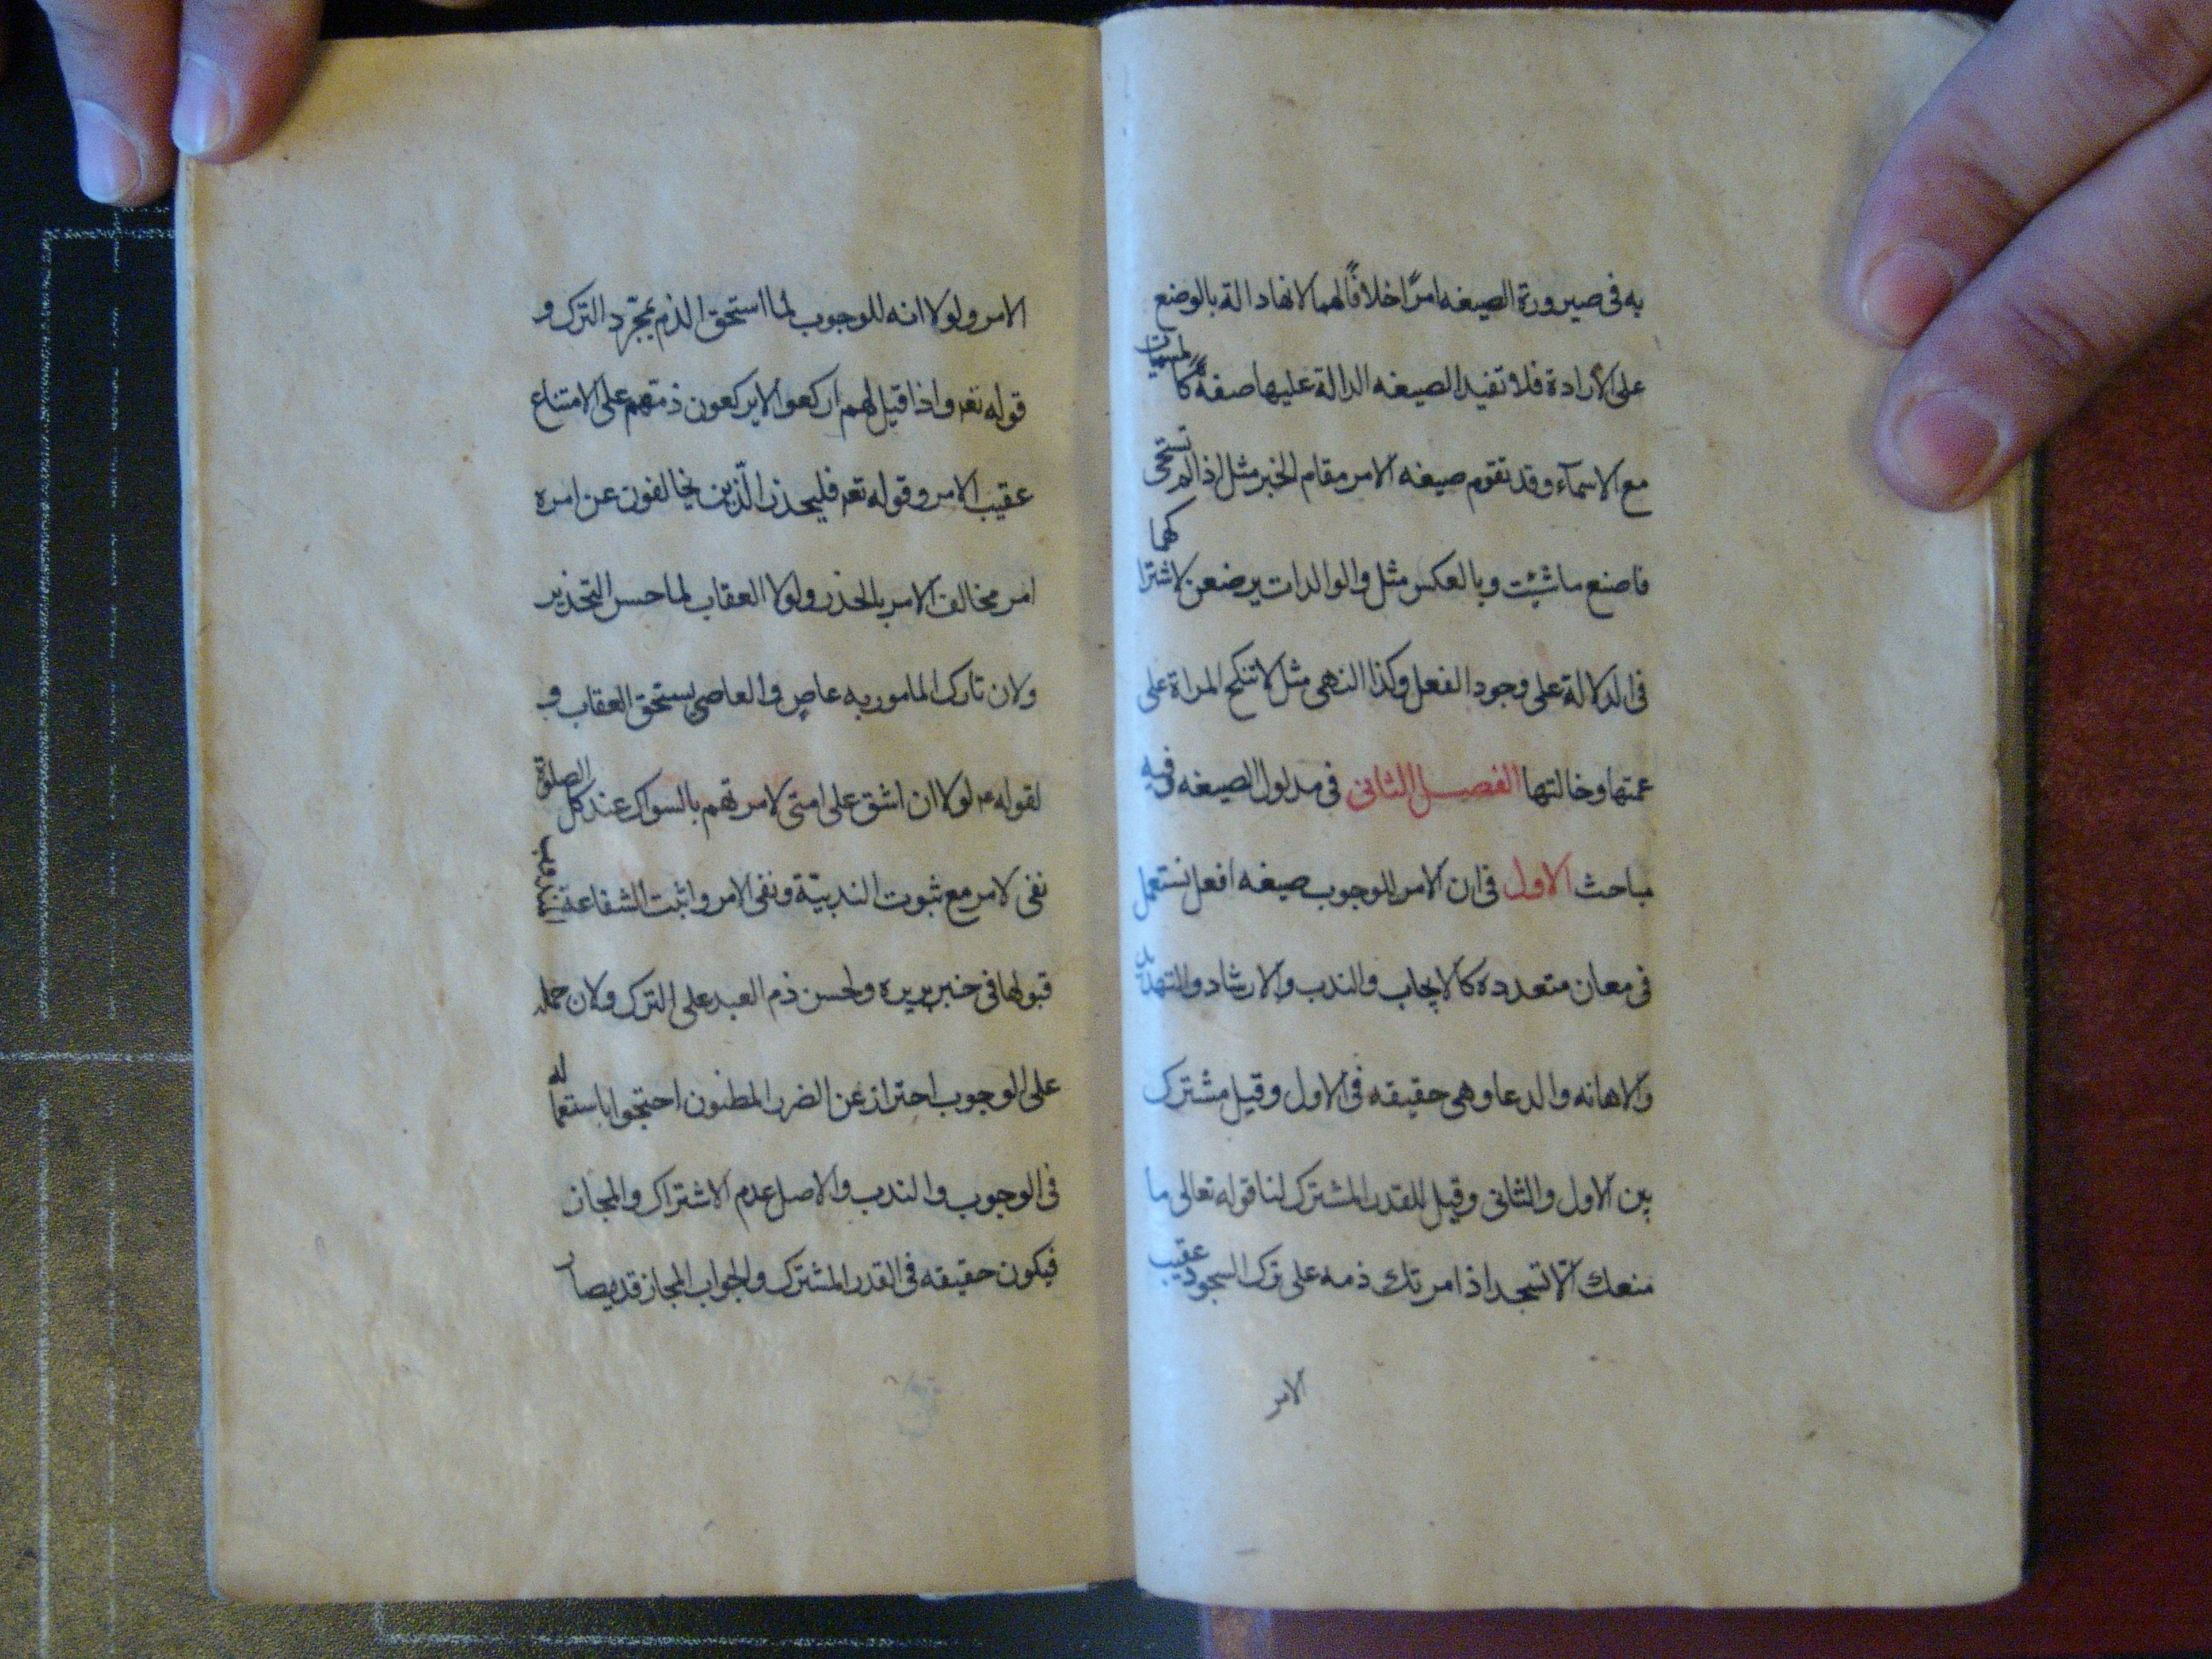 به فى صيرورة الصيغه امرًا خلافًا لهما لانها دالة بالوضع
على الارادة فلا تفيد الصيغه الدالة عليها صفةً كالمسميات
مع الاسمآء وقد تقوم صيغه الامر مقام الخبر مثل اذا لم تستحى
فاصنع ما شئت وبالعكس مثل والوالدات يرضعن لاشتراكهما
فى الدلالة على وجود الفعل وكذا النهى مثل لا تنكح المراة على
عمتها وخالتها الفصل الثانى فى مدلول الصيغه وفيه
مباحث الاول فى ان الامر للوجوب صيغه افعل تستعمل
فى معان متعدده كالايجاب والندب والارشاد والتهديد
والاهانه والدعا وهى حقيقه فى الاول وقيل مشترك
بين الاول والثانى وقيل للقدر المشترك لنا قوله تعالى ما
منعك الّا تسجد اذ امرتك ذمه على ترك السجود عقيب
الامر
الامر ولولا انه للوجوب لما استحق الذم بمجّرد الترك و
قوله تعه واذا قيل لهم اركعوا لا يركعون ذمّهم على الامتناع
عقيب الامر وقوله تعه فليحذر الّذين يخالفون عن امره
امر مخالف الامر بالحذر ولولا العقاب لما حسن التحذير
ولان تارك المامور به عاصٍ والعاصى يستحق العقاب و
لقوله عم لولا ان اشق على امتى لامرتهم بالسواك عند كل الصلوة
نفى الامر مع ثبوت الندبيّة ونفى الامر واثبت الشفاعة المندوب
قبولها فى خبر بريره ولحسن ذم العبد على الترك ولان حمله
على الوجوب احتراز عن الضرر المظنون احتجوا باستعماله
فى الوجوب والندب والاصل عدم الاشتراك والمجاز
فيكون حقيقه فى القدر المشترك والجواب المجاز قد يصار